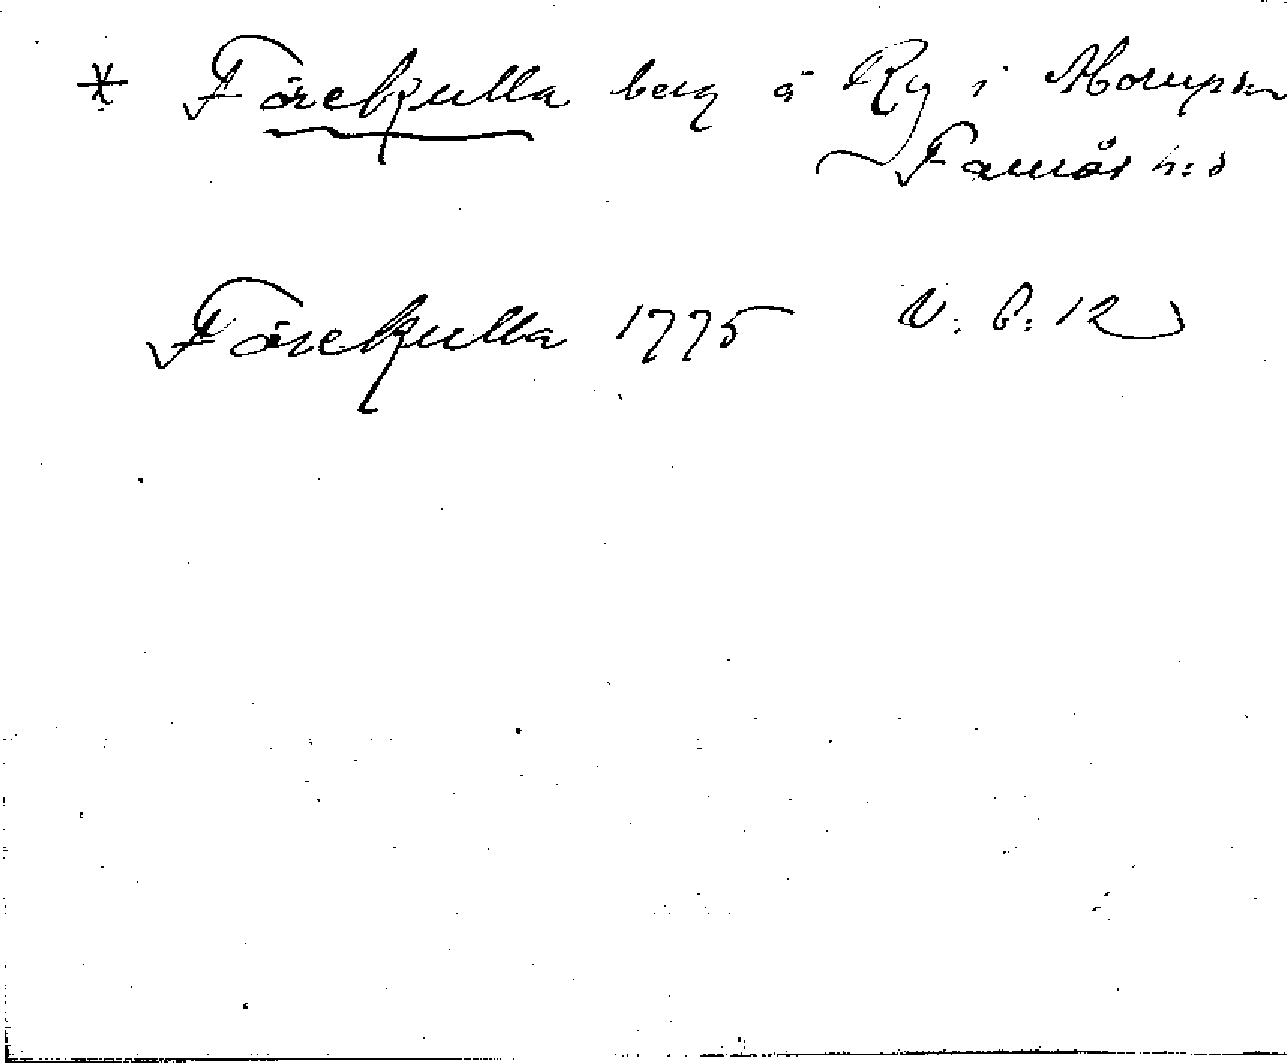 * Förekulla berg å Ry i Morups sn
Faurås h:d
Förekulla 1775 V. 6: 12